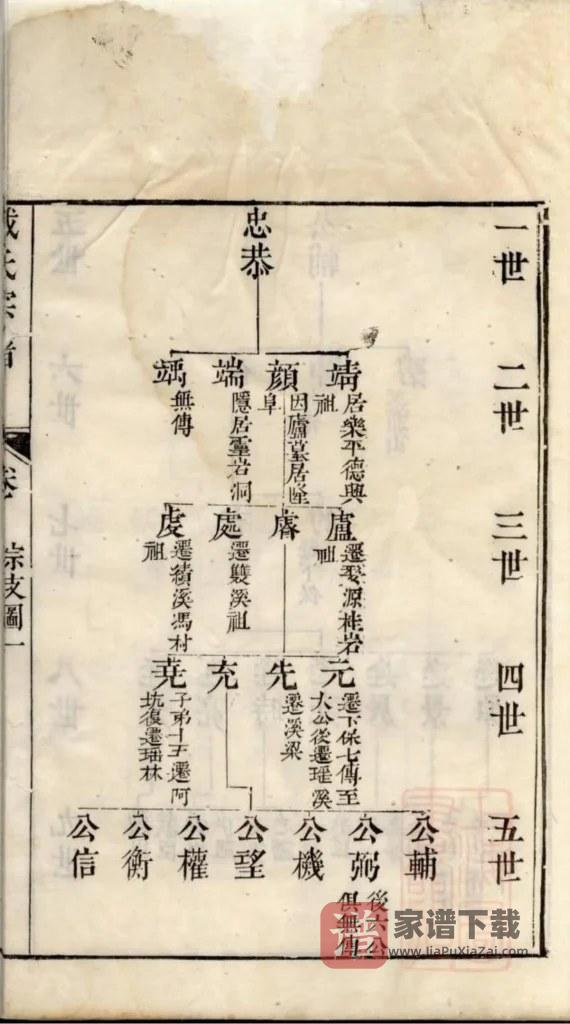 一世
二世
三世
四世
五世
忠恭
靖
居樂平德興
祖
顔
因廬墓居隆
阜
端
隱居靈岩洞
竬
無傳
廬
遷婺源桂岩
祖
睿
處
遷雙溪祖
虔
遷績溪馮村
祖
元
遷下保七傳至
大公後遷瑶溪
先
遷溪梁
充
堯
子弟十五遷阿
坑復遷瑶林
公輔
公弼
後六公
俱無傳
公機
公望
公權
公衡
公信
氏宗譜
卷
綜支圖一
譜
家谱下载
www.JiaPuXiaZai.com